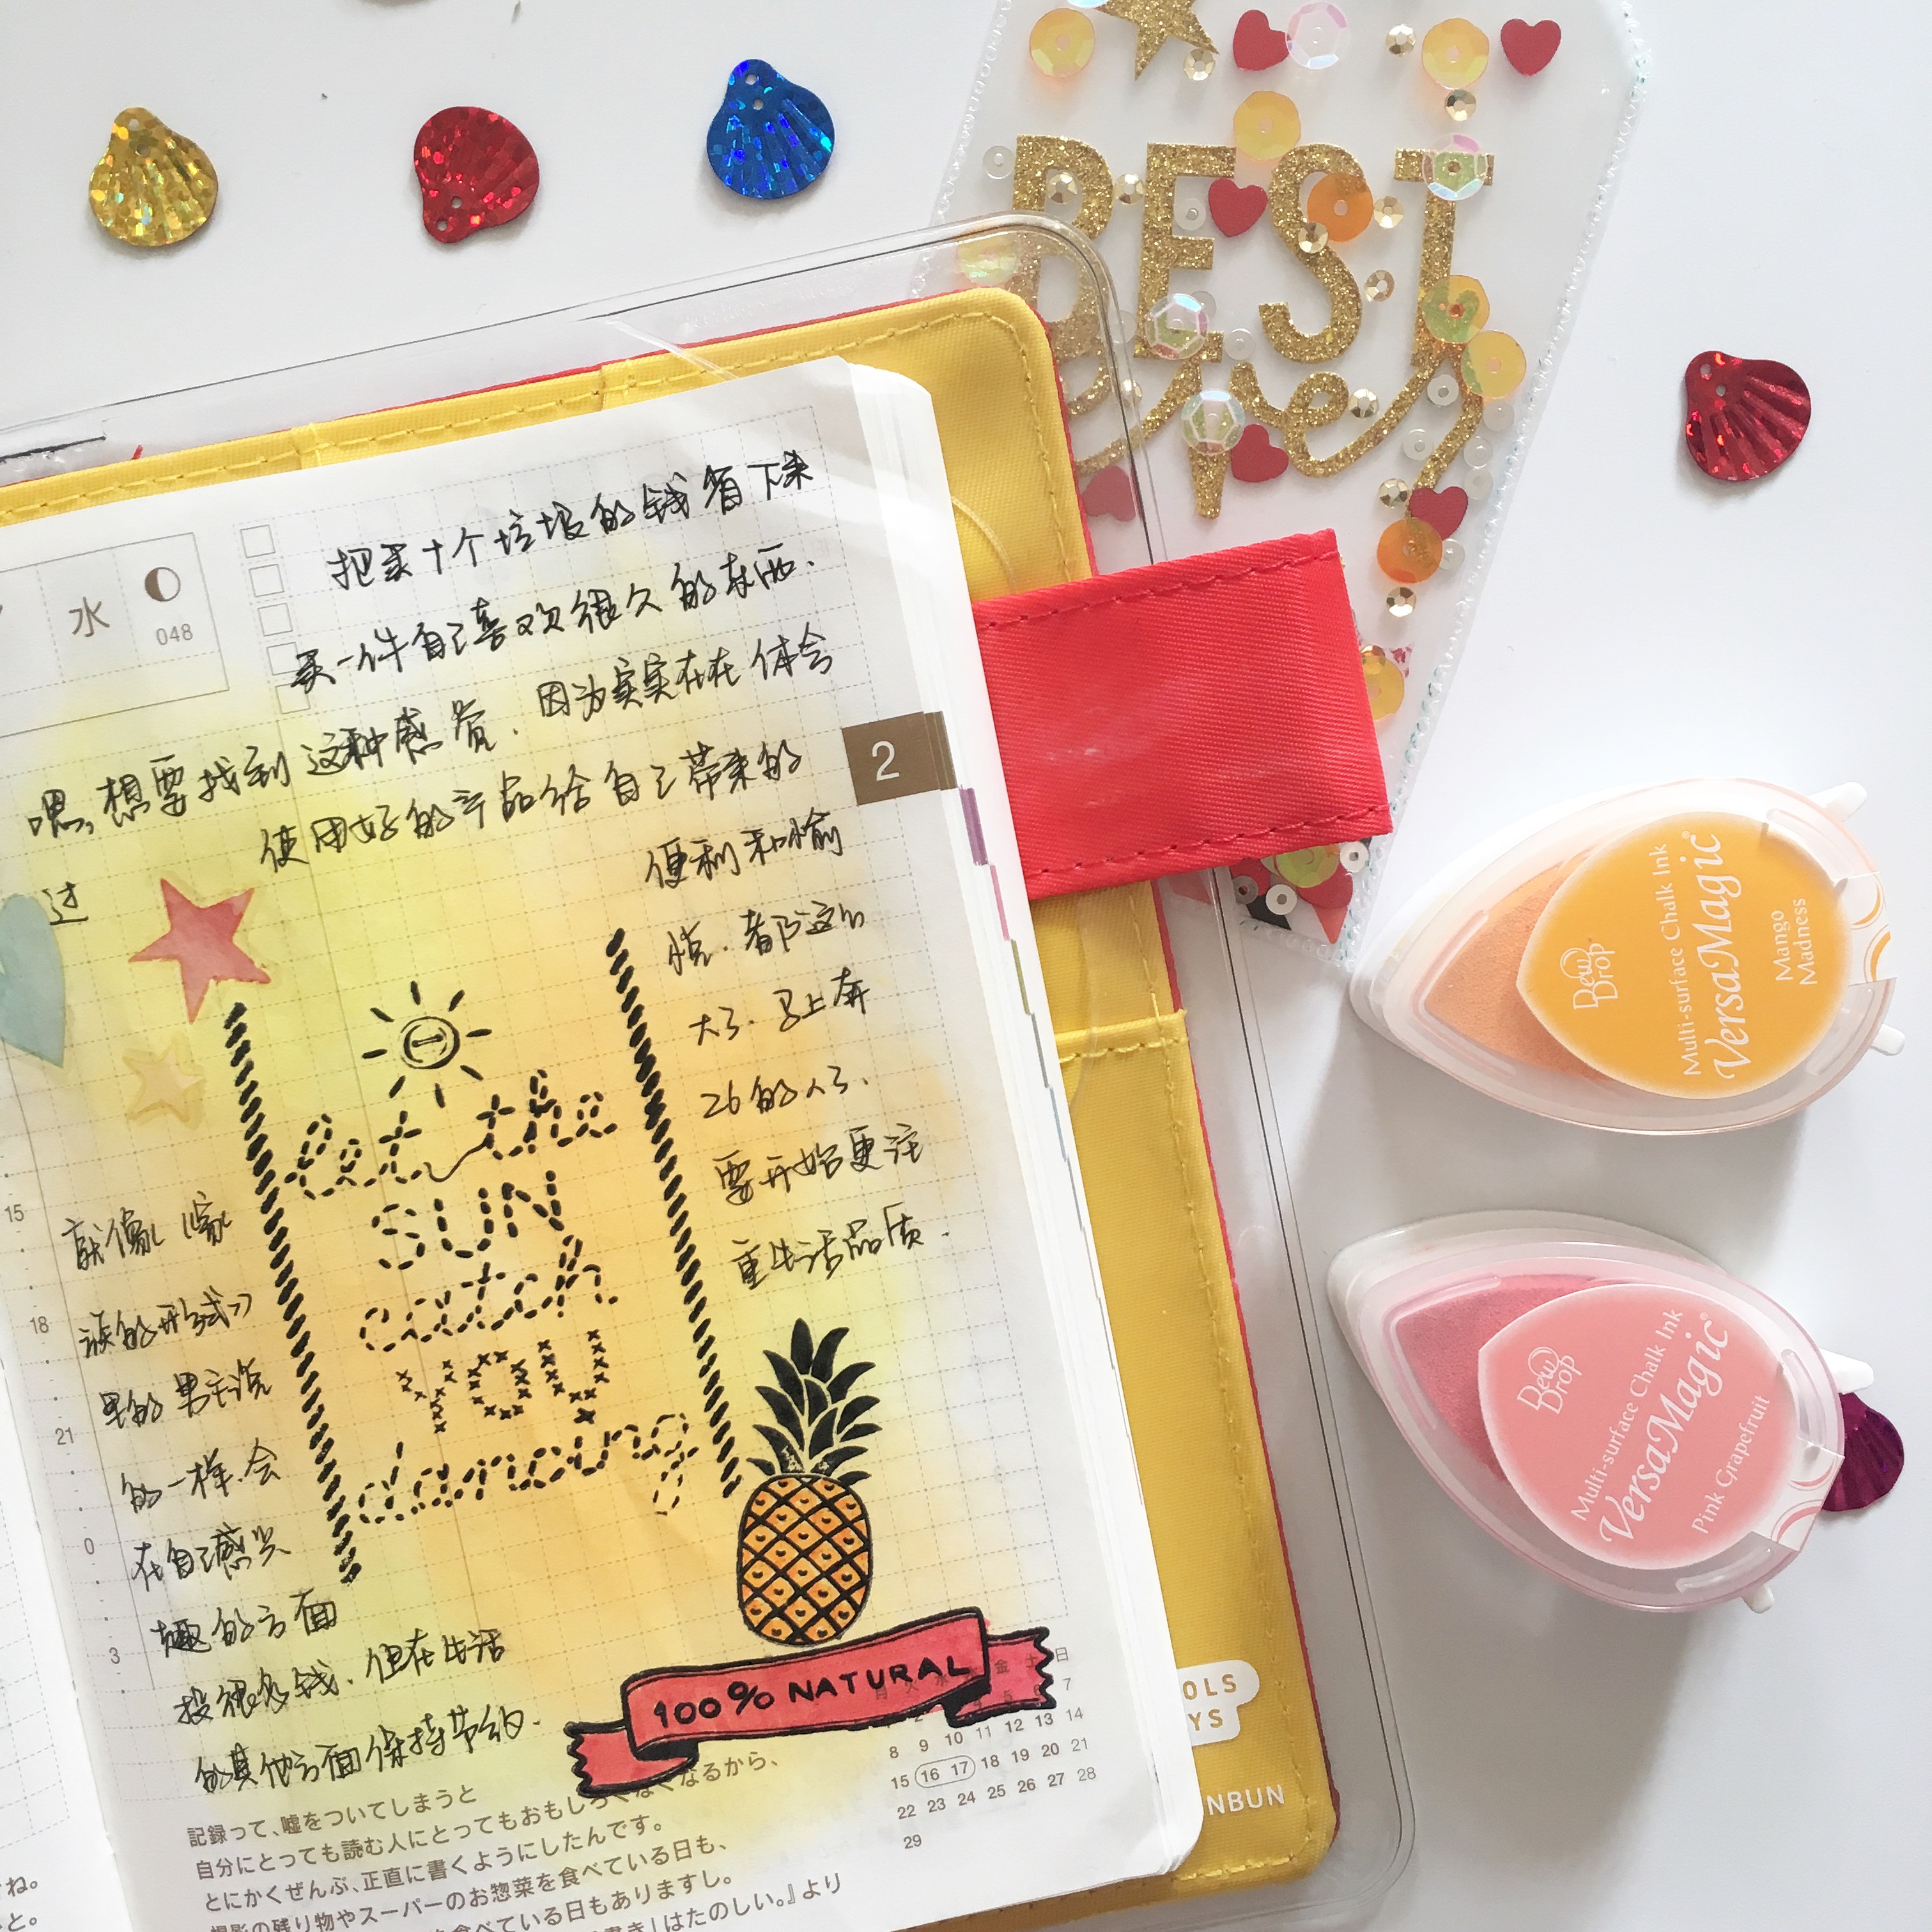 BEST
Ever
水
048
把买十个垃圾的钱省下来
买一件自己喜欢很久的东西.
嗯,想要找到这种感觉.因为实实在在体会
过
使用好的产品给自己带来的
便利和愉
悦.都这么
大了.马上奔
26的人了.
要开始更注
重生活品质.
2
let the
SUN
catch
YOU
dancing
15
18
21
0
3
就像《家
族的形式》
里的男主说
的一样.会
在自己感兴
趣的方面
投很多钱.但在生活
的其他方面保持节约.
100% NATURAL
金 土 日
7
9 10 11 12 13 14
8
15 16 17 18 19 20 21
22 23 24 25 26 27 28
29
記録って、嘘をついてしまうと
自分にとっても読む人にとってもおもしろくなくなるから、
とにかくぜんぶ、正直に書くようにしたんです。
撮影の残り物やスーパーのお惣菜を食べている日も、
食べている日もありますし。
書き」はたのしい。』より
ね。
と。
OLS
YS
NBUN
Dew Drop
Multi-surface Chalk Ink
VersaMagic
Mango Madness
Dew Drop
Multi-surface Chalk Ink
VersaMagic
Pink Grapefruit